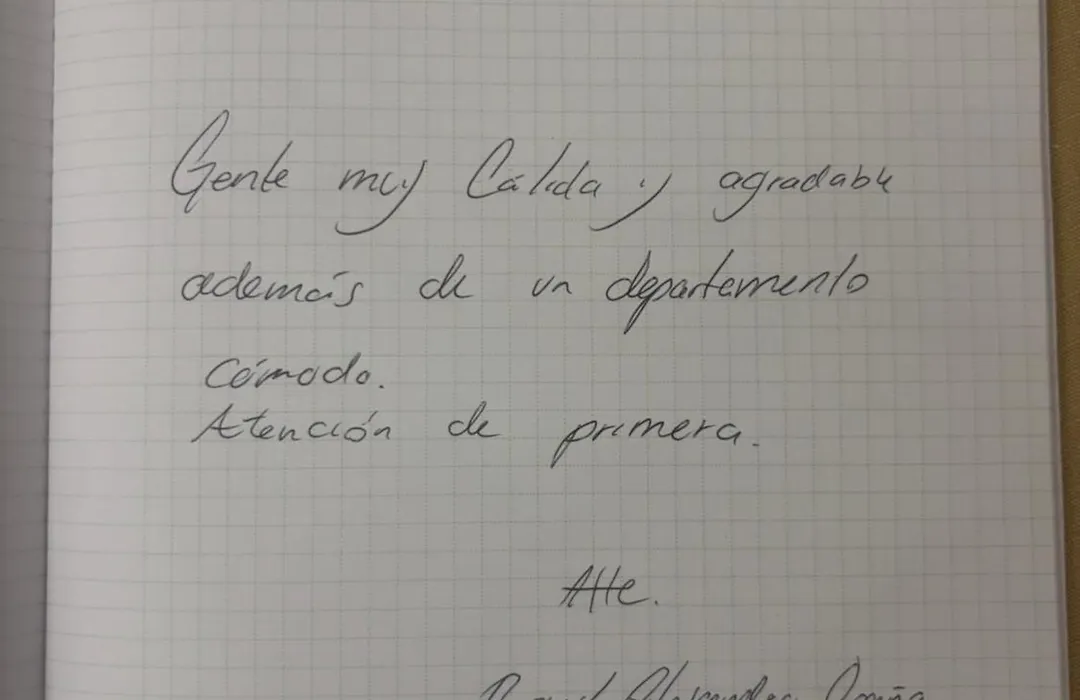 Gente muy Cálida y agradable
además de un departamento
cómodo.
Atención de primera.
Atte.